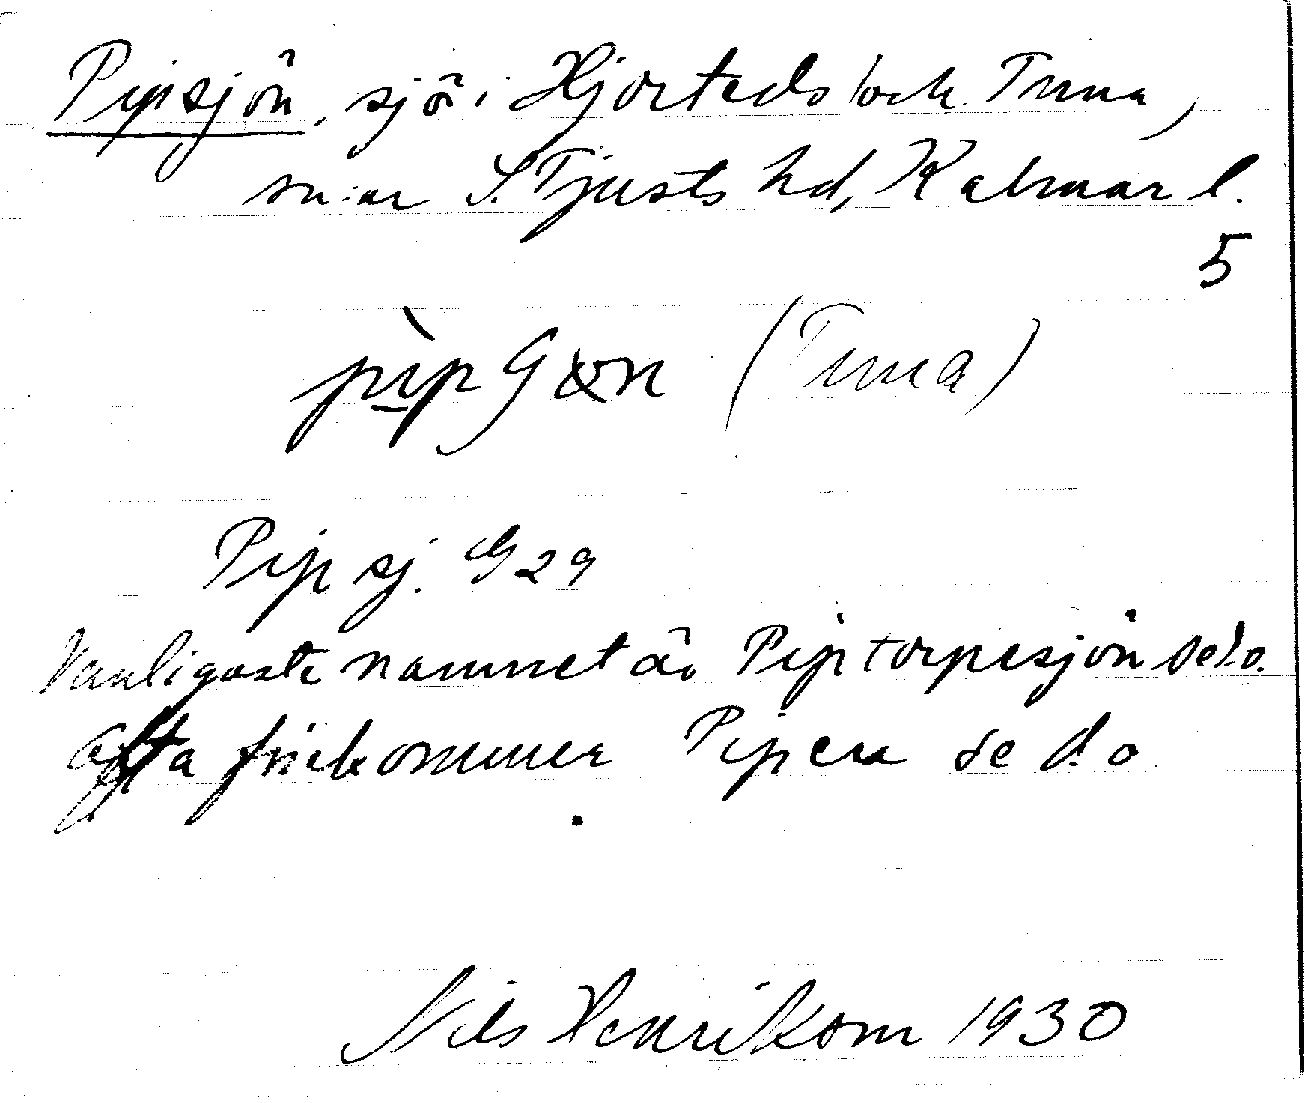 Pipsjön, sjö i Hjorteds och Tuna,
sn:ar S. Tjusts hd, Kalmar l.
5
pìpSön (Tuna)
Pip sj. G 29
Vanligaste namnet är Piptorpesjön se d.o.
Ofta förekommer Pipern se d.o
Nils Henrikson 1930